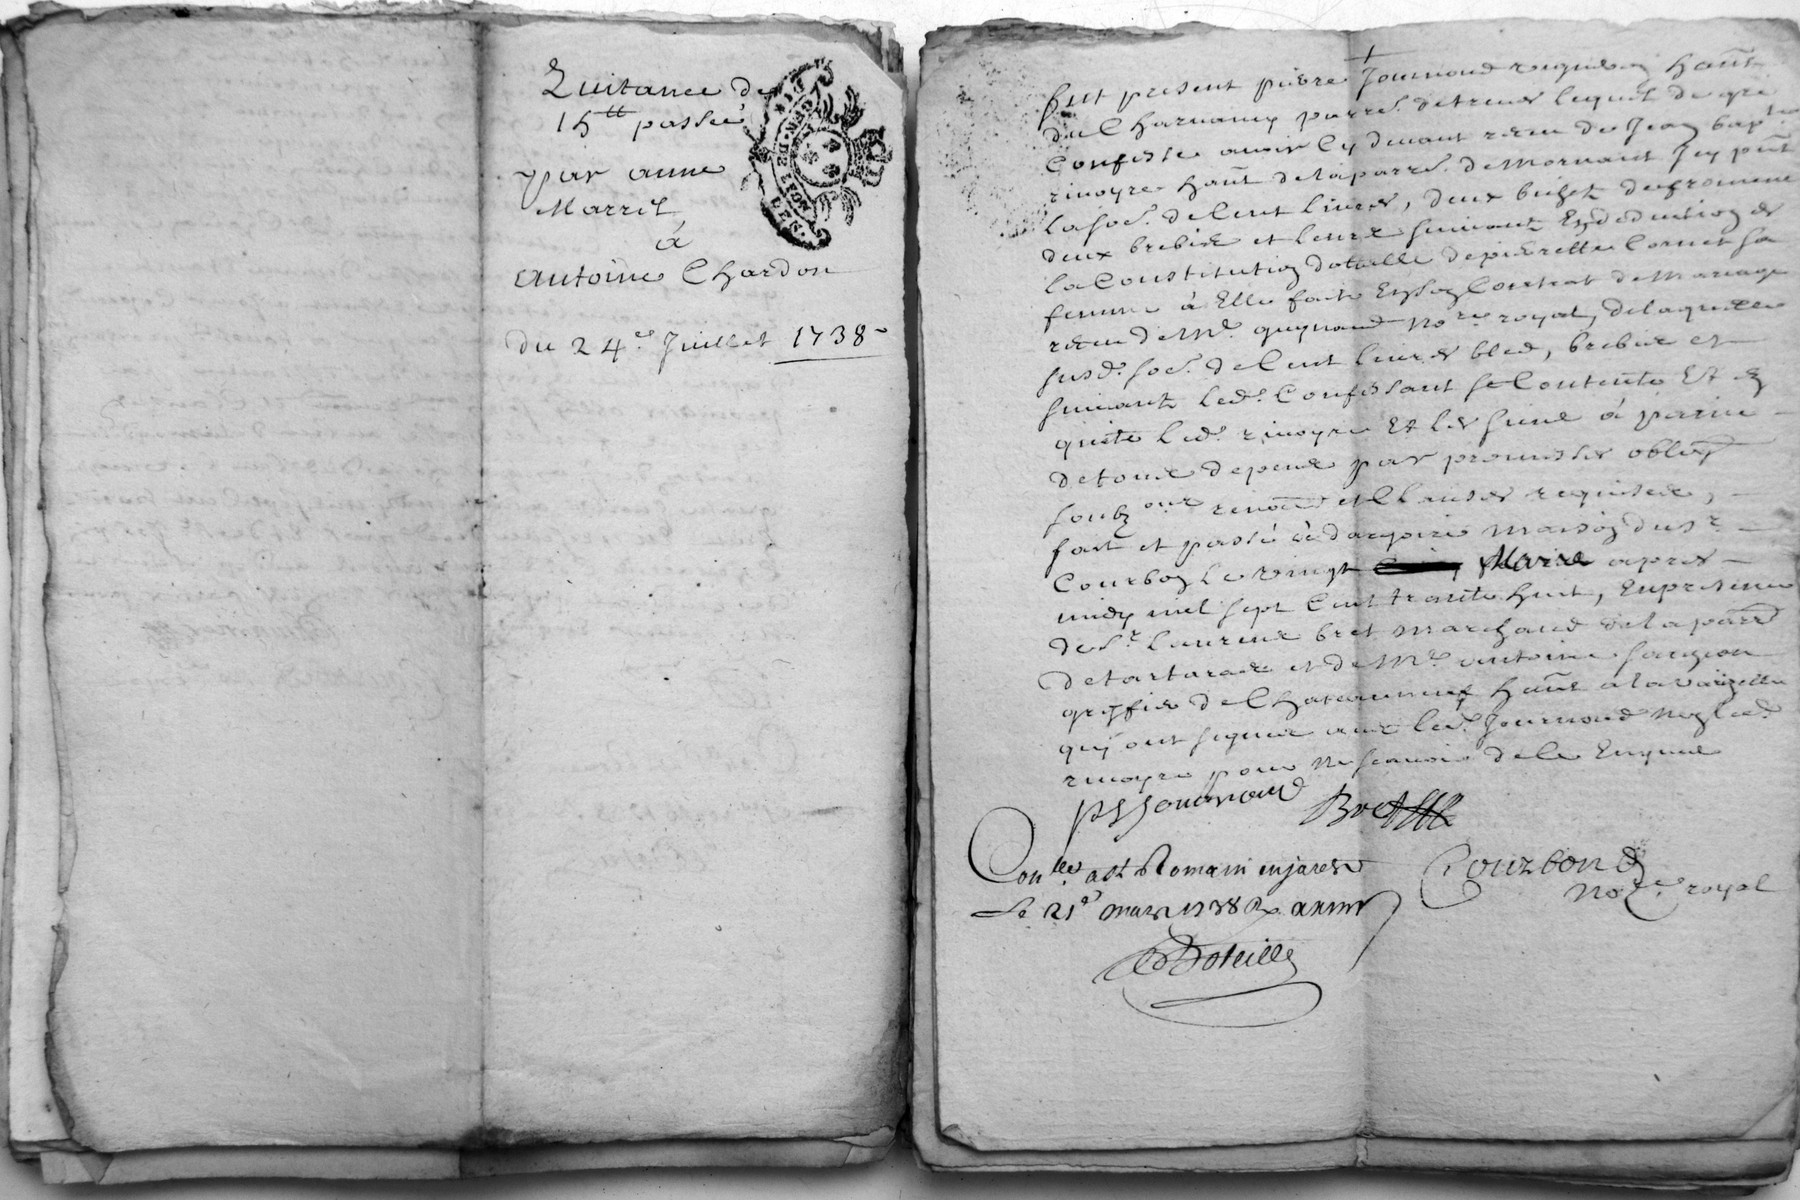 Quitance de
15ᵗᵗ passée
par anne
Marrel
à
antoine Chardon
du 24ᵉ Juillet 1738
GEN. DE LYON
Fut present pierre Journoud vigneron hant
du Charnavy parre. de trèves lequel de gré
Confesse avoir cy devant receu de Jean bapte
rivoyre hant de la parre. de Mornant Icy pnt
la soe. de Cent livres, deux bichet de froment
deux brebis et leurs suivant En deduction de
la Constitution dottalle de pierrette Cornet sa
femme à Elle faite En son Contrat de Mariage
receu de Me. guynand nore. royal, de laquelle
susd. soe. de Cent livres bled, brebis et
suivant led. Confessant se Contente Et en
quitte led. rivoyre Et les siens à peine
de tous depens par promesses oblig
soubz our renon et Clauses requises,
fait et passé à dargoire maison du sr.
Courbon le vingt Mars apres
midy mil sept Cent trente huit, En presence
de Sr. laurent bret marchand de la parre
de tartaras et de Me. antoine
greffier de Chateauneuf hant a la
quy ont signé avec led. Journoud non led.
rivoyre pour ne scavoir de le Enquis
p Journoud
Bret
Conlé. a St Romain en jarest
Le 21e mars 1738 R.
Courbon
Nore. royal
Boteille